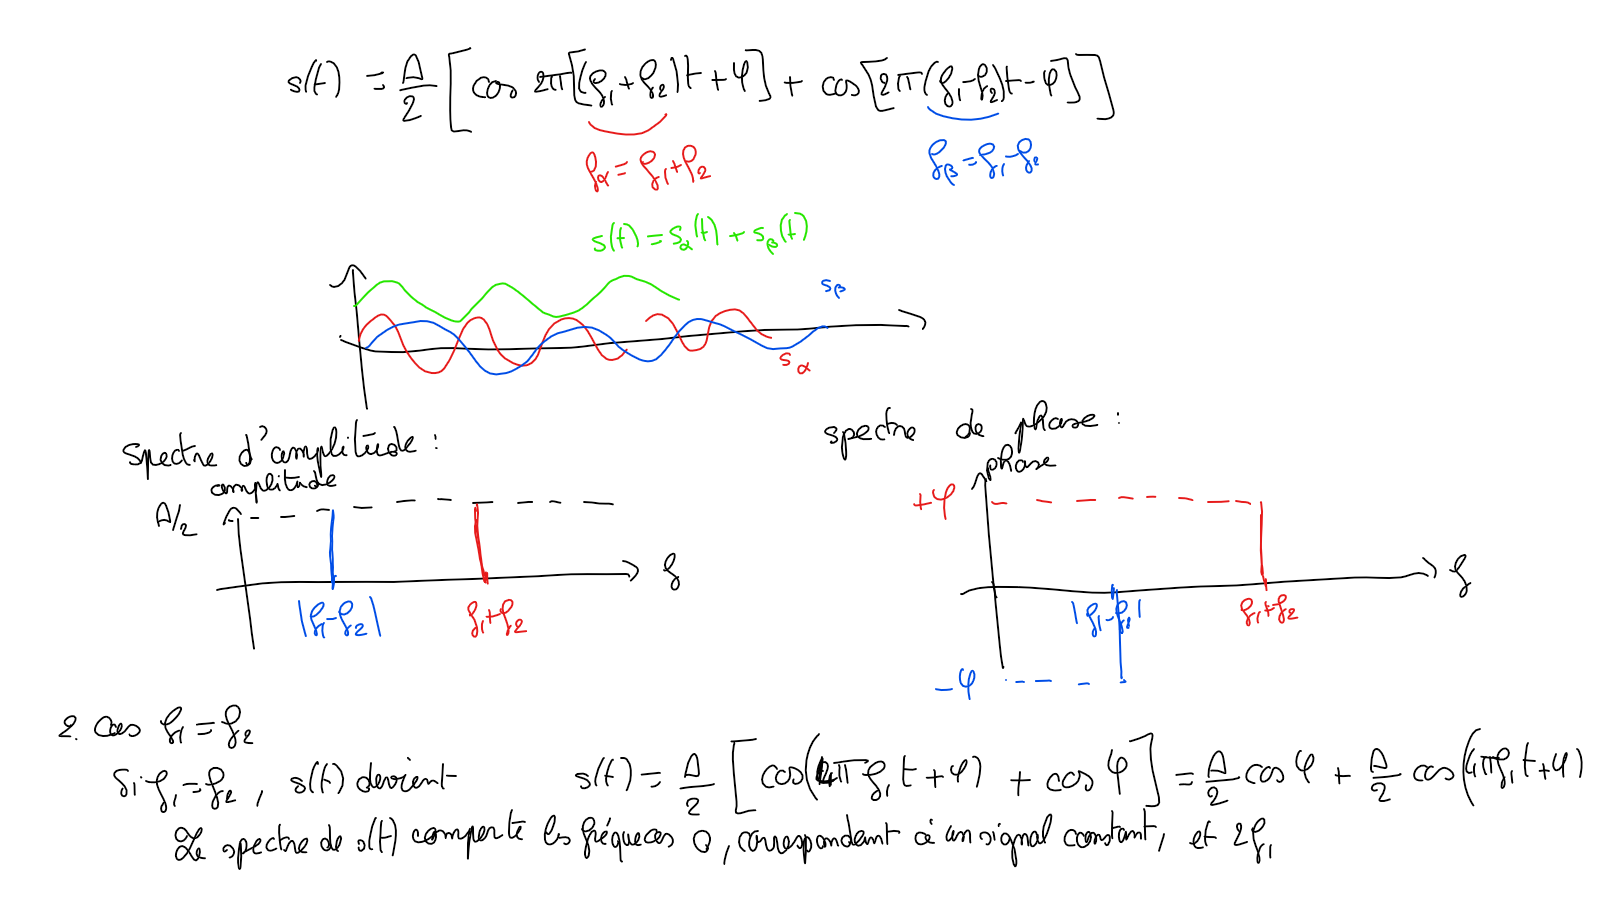 s(t) = A/2 [cos 2π[(f₁+f₂)t + φ] + cos[2π(f₁-f₂)t - φ]]
fα = f₁+f₂
fβ = f₁-f₂
s(t) = sα(t) + sβ(t)
sβ
sα
Spectre d'amplitude :
amplitude
A/2
f
|f₁-f₂|
f₁+f₂
spectre de phase :
phase
+φ
f
|f₁-f₂|
f₁+f₂
-φ
2. Cas f₁ = f₂
Si f₁ = f₂, s(t) devient s(t) = A/2 [cos(4πf₁t + φ) + cos φ] = A/2 cos φ + A/2 cos(4πf₁t + φ)
Le spectre de s(t) comporte les fréqueces 0, correspondant à un signal constant, et 2f₁